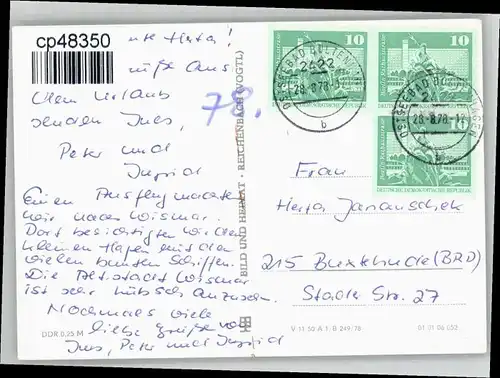 cp48350
Herta!
Grüße aus
dem Urlaub
senden Ines,
Peter und
Ingrid
Einen Ausflug machten
wir nach Wismar.
Dort besichtigten wir den
kleinen Hafen mit den
vielen bunten Schiffen.
Die Altstadt Wismar
ist sehr hübsch anzusehen.
Nochmals viele
liebe Grüße von
Ines, Peter und Ingrid
DDR 0,25 M
78.
BILD UND HEIMAT · REICHENBACH (VOGTL)
10
10
10
DEUTSCHE DEMOKRATISCHE REPUBLIK
OSTSEEBAD BOLTENHAGEN
2422
28.-8.78
b
OSTSEEBAD
28.-8.78
Frau
Herta Jananschek
215 Buxtehude (BRD)
Stader Str. 27
V 11 50 A 1/B 249/78
01 11 06 052